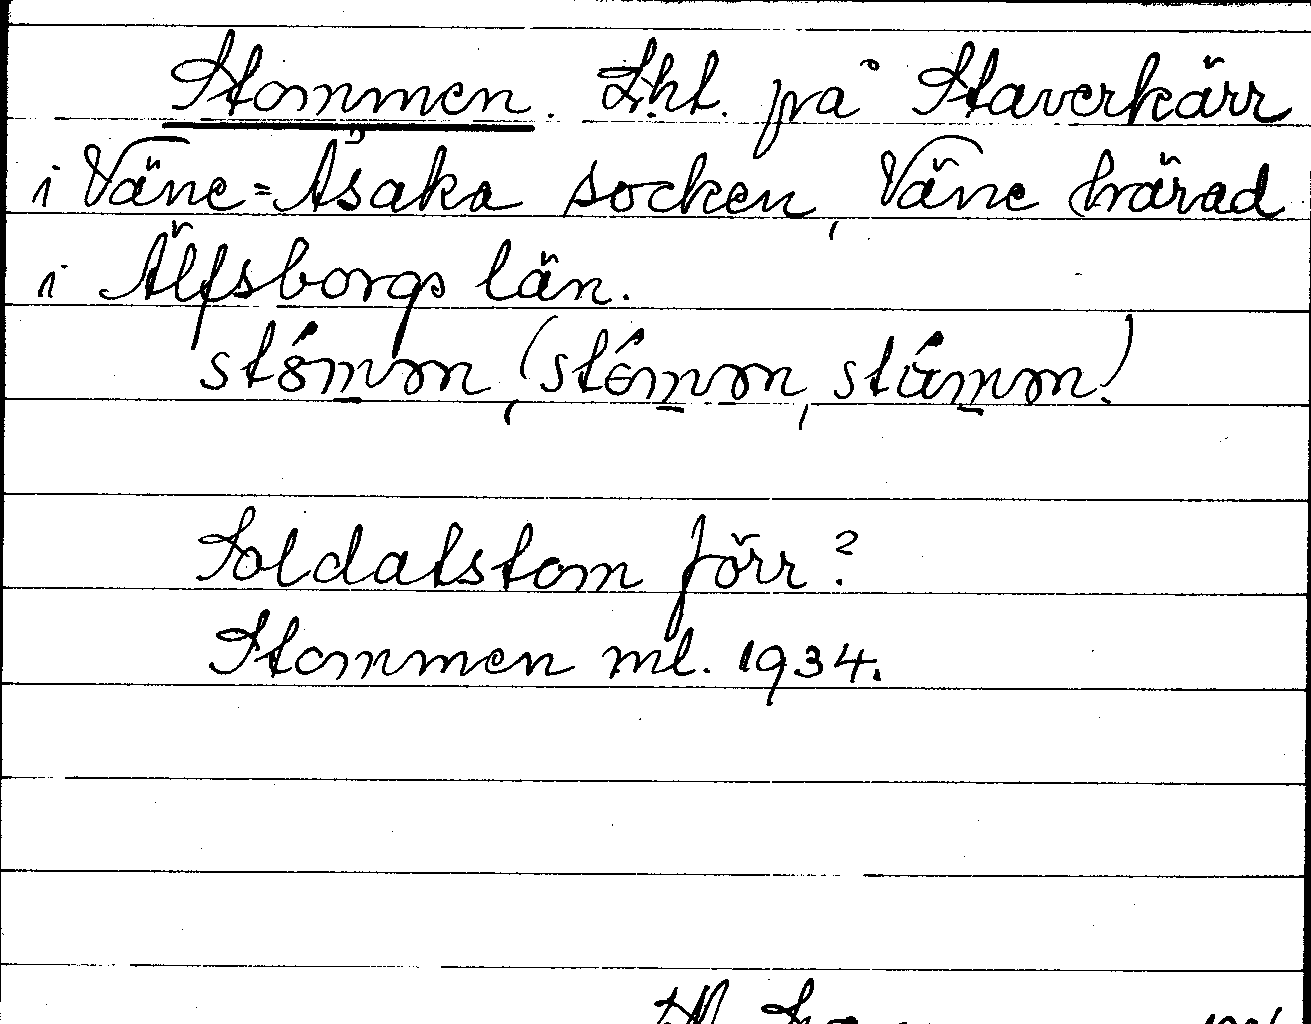 Stommen. Lht. på Staverkärr
i Väne=Åsaka socken, Väne härad
i Älfsborgs län.
Soldatstom förr?
Stommen ml. 1934.